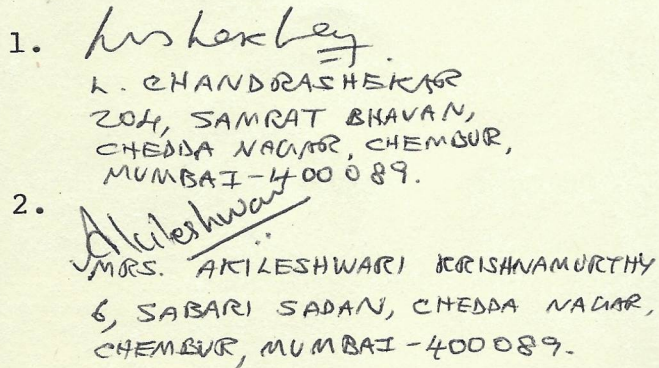 1.
L. CHANDRASHEKAR
204, SAMRAT BHAVAN,
CHEDDA NAGAR, CHEMBUR,
MUMBAI-400089.
2. Akileshwari
MRS. AKILESHWARI KRISHNAMURTHY
6, SABARI SADAN, CHEDDA NAGAR,
CHEMBUR, MUMBAI-400089.